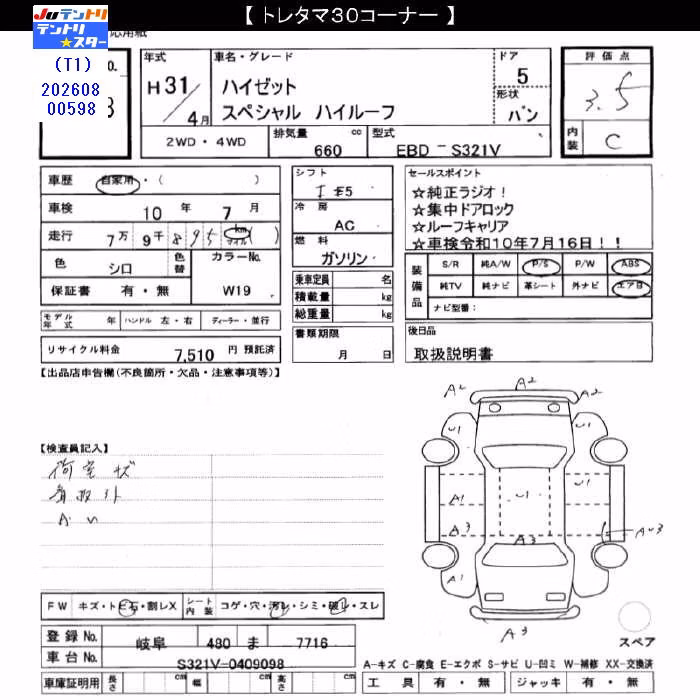 【 トレタマ30コーナー 】
Juテントリ
テントリ★スター
応用紙
(T1)
202608
00598
No.
3
年式
H31/4月
車名・グレード
ハイゼット
スペシャル ハイルーフ
ドア
5
形状
バン
評価点
3.5
内装
C
2WD・4WD
排気量 660 cc
型式 EBD-S321V
車歴 自家用・( )
車検 10年 7月
走行 7万9千895 km マイル ( )
色 シロ
色替
カラーNo.
W19
保証書 有・無
シフト
I F5
冷房
AC
燃料
ガソリン
乗車定員 名
積載量 kg
総重量 kg
書類期限
月 日
セールスポイント
☆純正ラジオ!
☆集中ドアロック
☆ルーフキャリア
☆車検令和10年7月16日!!
装備品
S/R 純A/W P/S P/W ABS
純TV 純ナビ 革シート 外ナビ エアB
ナビ型番:
モデル年式 年 ハンドル 左・右 ディーラー・並行
リサイクル料金 7,510 円 預託済
後日品
取扱説明書
【出品店申告欄(不良箇所・欠品・注意事項等)】
【検査員記入】
荷室 キズ
A2 A2 A2
U1 U1
A1 U1
A3 A3 AU3
A1 U1
A3
スペア
FW キズ・トビ石・割レX
シート内装 コゲ・穴・汚レ・シミ・破レ・スレ
登録No. 岐阜 480 ま 7716
車台No. S321V-0409098
A-キズ C-腐食 E-エクボ S-サビ U-凹ミ W-補修 XX-交換済
車庫証明用 長さ cm 幅 cm 高さ cm
工具 有・無 ジャッキ 有・無